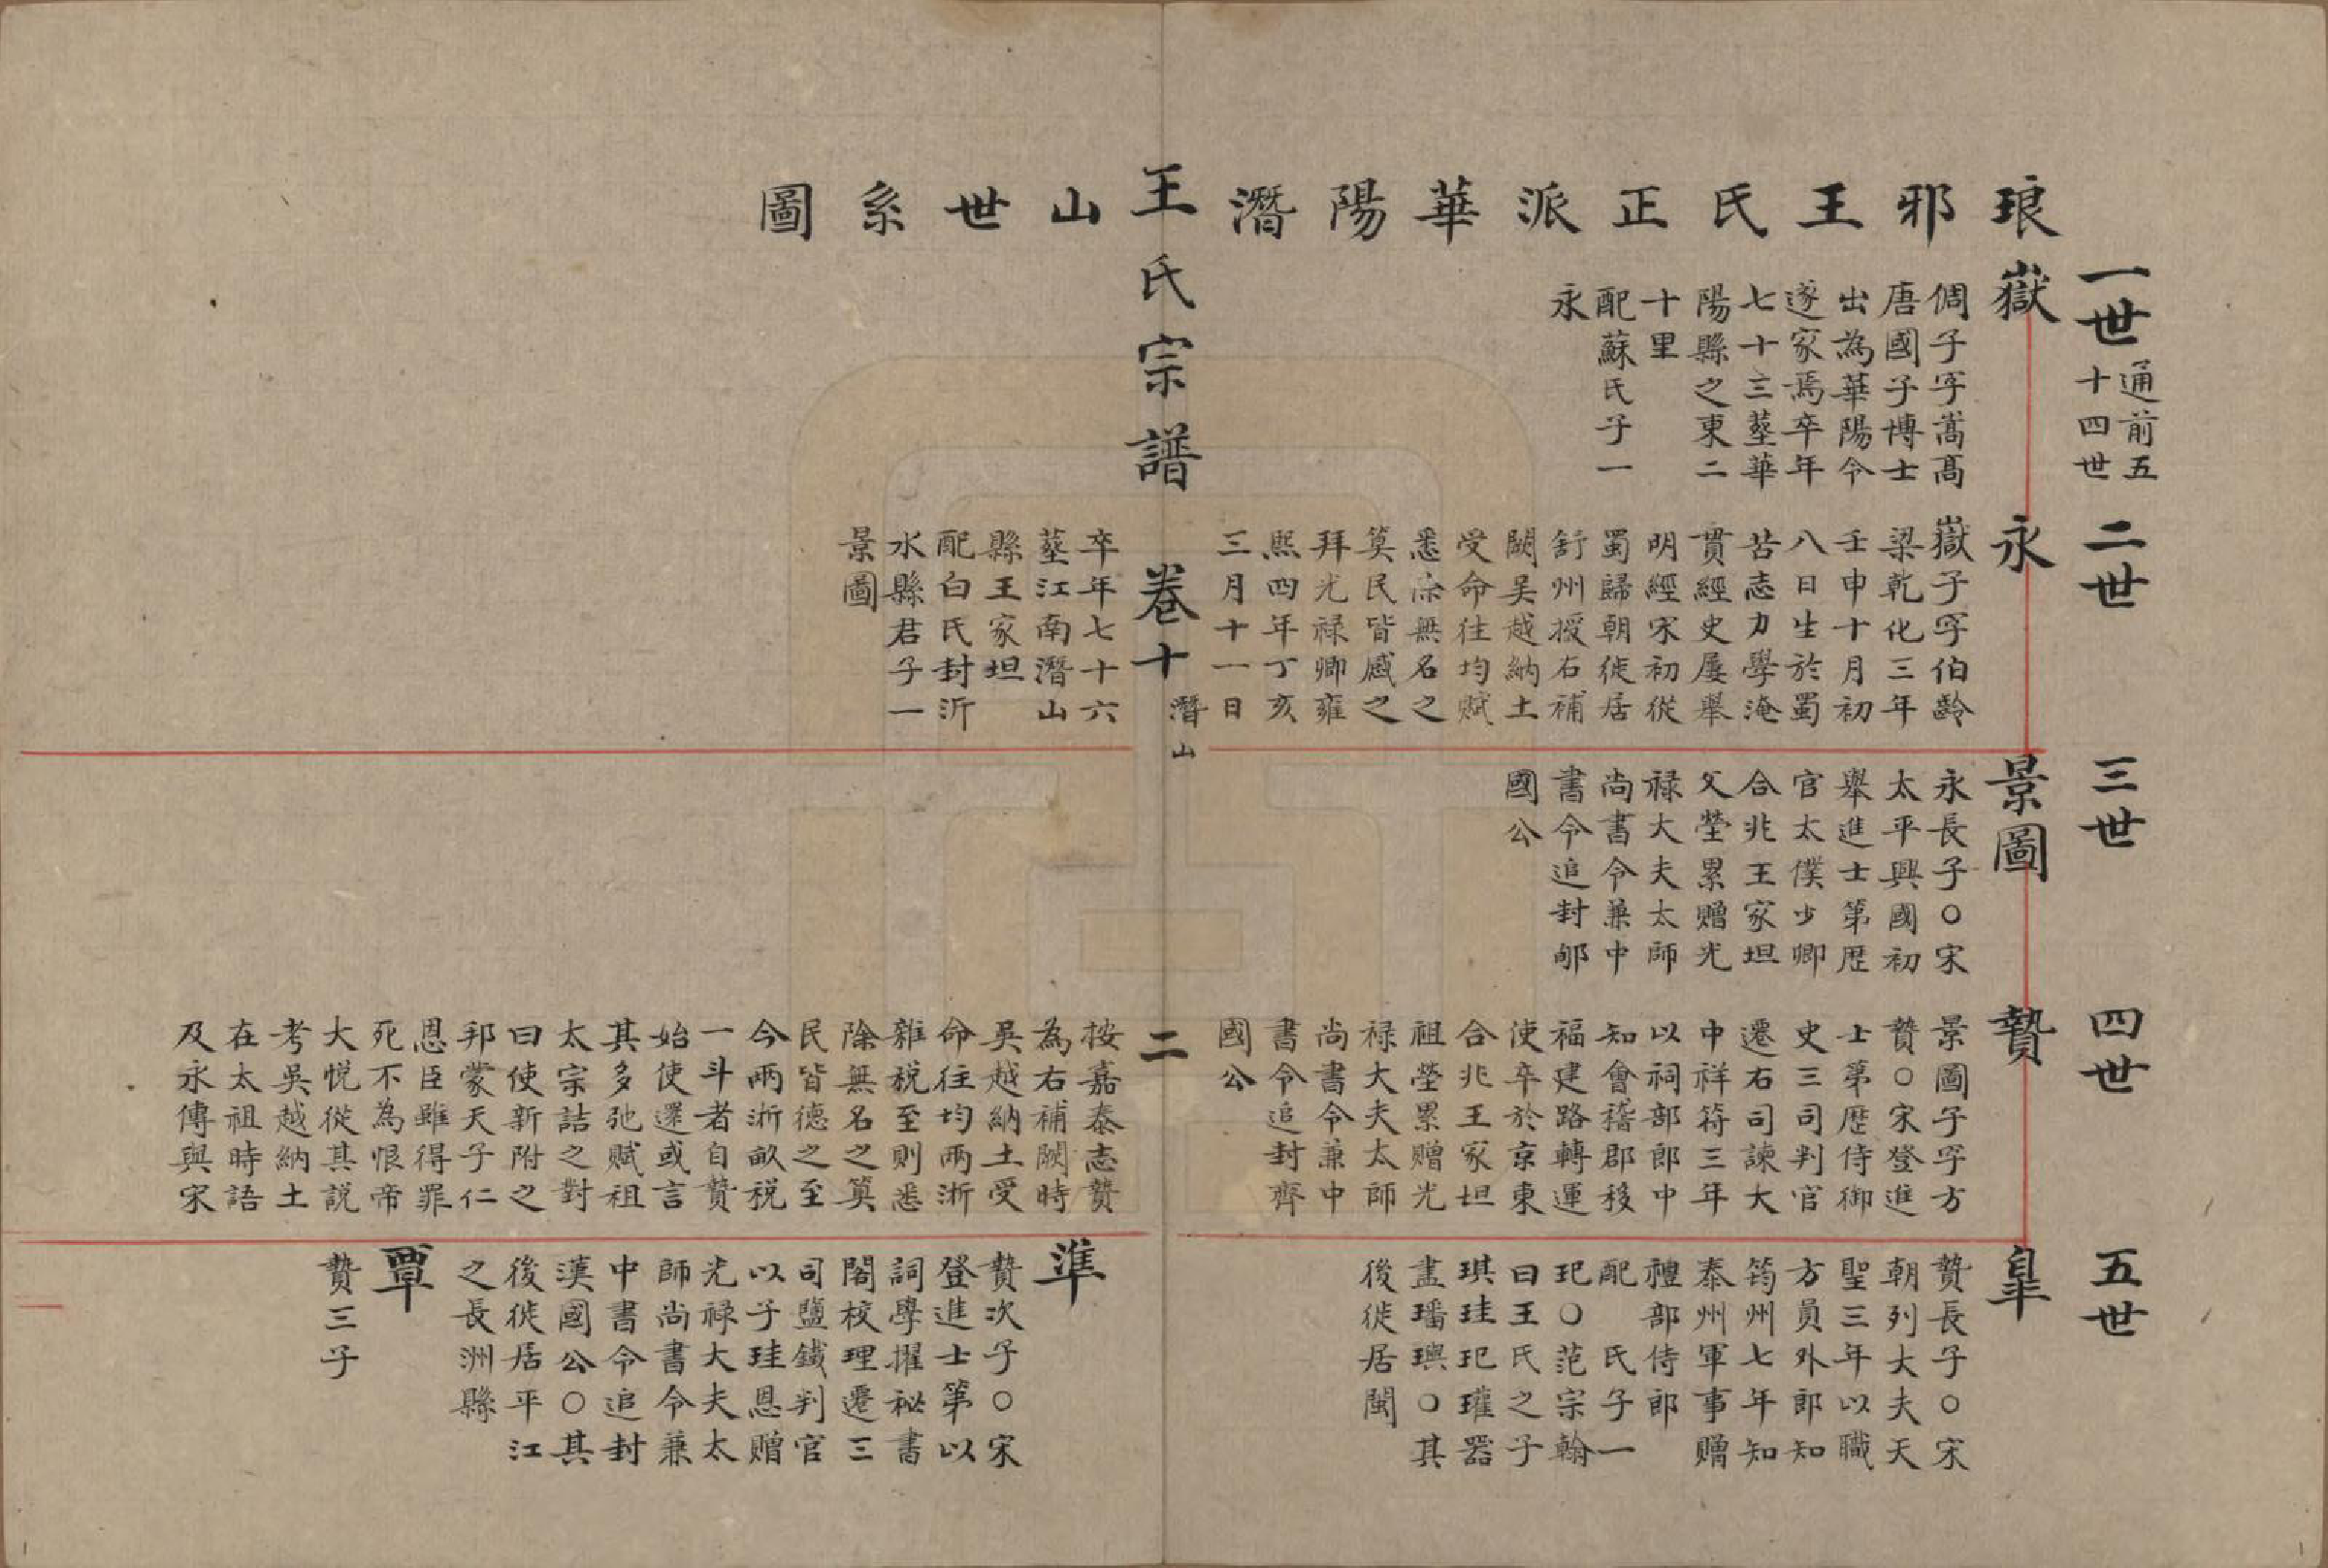 琅邪王氏正派華陽潛山世系圖
一世
通前五
十四世
嶽
倜子字嵩高
唐國子博士
出為華陽令
遂家焉卒年
七十三墓華
陽縣之東二
十里
配蘇氏子一
永
二世
永
嶽子字伯齡
梁乾化三年
壬申十月初
八日生於蜀
苦志力學淹
貫經史屢舉
明經宋初從
蜀歸朝徙居
舒州授右補
闕吳越納土
受命往均賦
悉除無名之
筭民皆感之
拜光祿卿雍
熙四年丁亥
三月十一日
卒年七十六
墓江南潛山
縣王家坦
配白氏封沂
水縣君子一
景圖
三世
景圖
永長子○宋
太平興國初
舉進士第歷
官太僕少卿
合兆王家坦
父塋累贈光
祿大夫太師
尚書令兼中
書令追封郇
國公
四世
贄
景圖子字方
贄○宋登進
士第歷侍御
史三司判官
遷右司諫大
中祥符三年
以祠部郎中
知會稽郡移
福建路轉運
使卒於京東
合兆王家坦
祖塋累贈光
祿大夫太師
尚書令兼中
書令追封齊
國公
按嘉泰志贄
為右補闕時
吳越納土受
命往均兩浙
雜稅至則悉
除無名之筭
民皆德之至
今兩浙畝稅
一斗者自贄
始使還或言
其多弛賦租
太宗詰之對
曰使新附之
邦蒙天子仁
恩臣雖得罪
死不為恨帝
大悅從其說
考吳越納土
在太祖時語
及永傳與宋
五世
皐
贄長子○宋
朝列大夫天
聖三年以職
方員外郎知
筠州七年知
泰州軍事贈
禮部侍郎
配 氏子一
玘○范宗翰
曰王氏之子
琪珪玘瓘器
畫璠璵○其
後徙居閩
準
贄次子○宋
登進士第以
詞學擢秘書
閣校理遷三
司鹽鐵判官
以子珪恩贈
光祿大夫太
師尚書令兼
中書令追封
漢國公○其
後徙居平江
之長洲縣
覃
贄三子
王氏宗譜
卷十
潛山
二